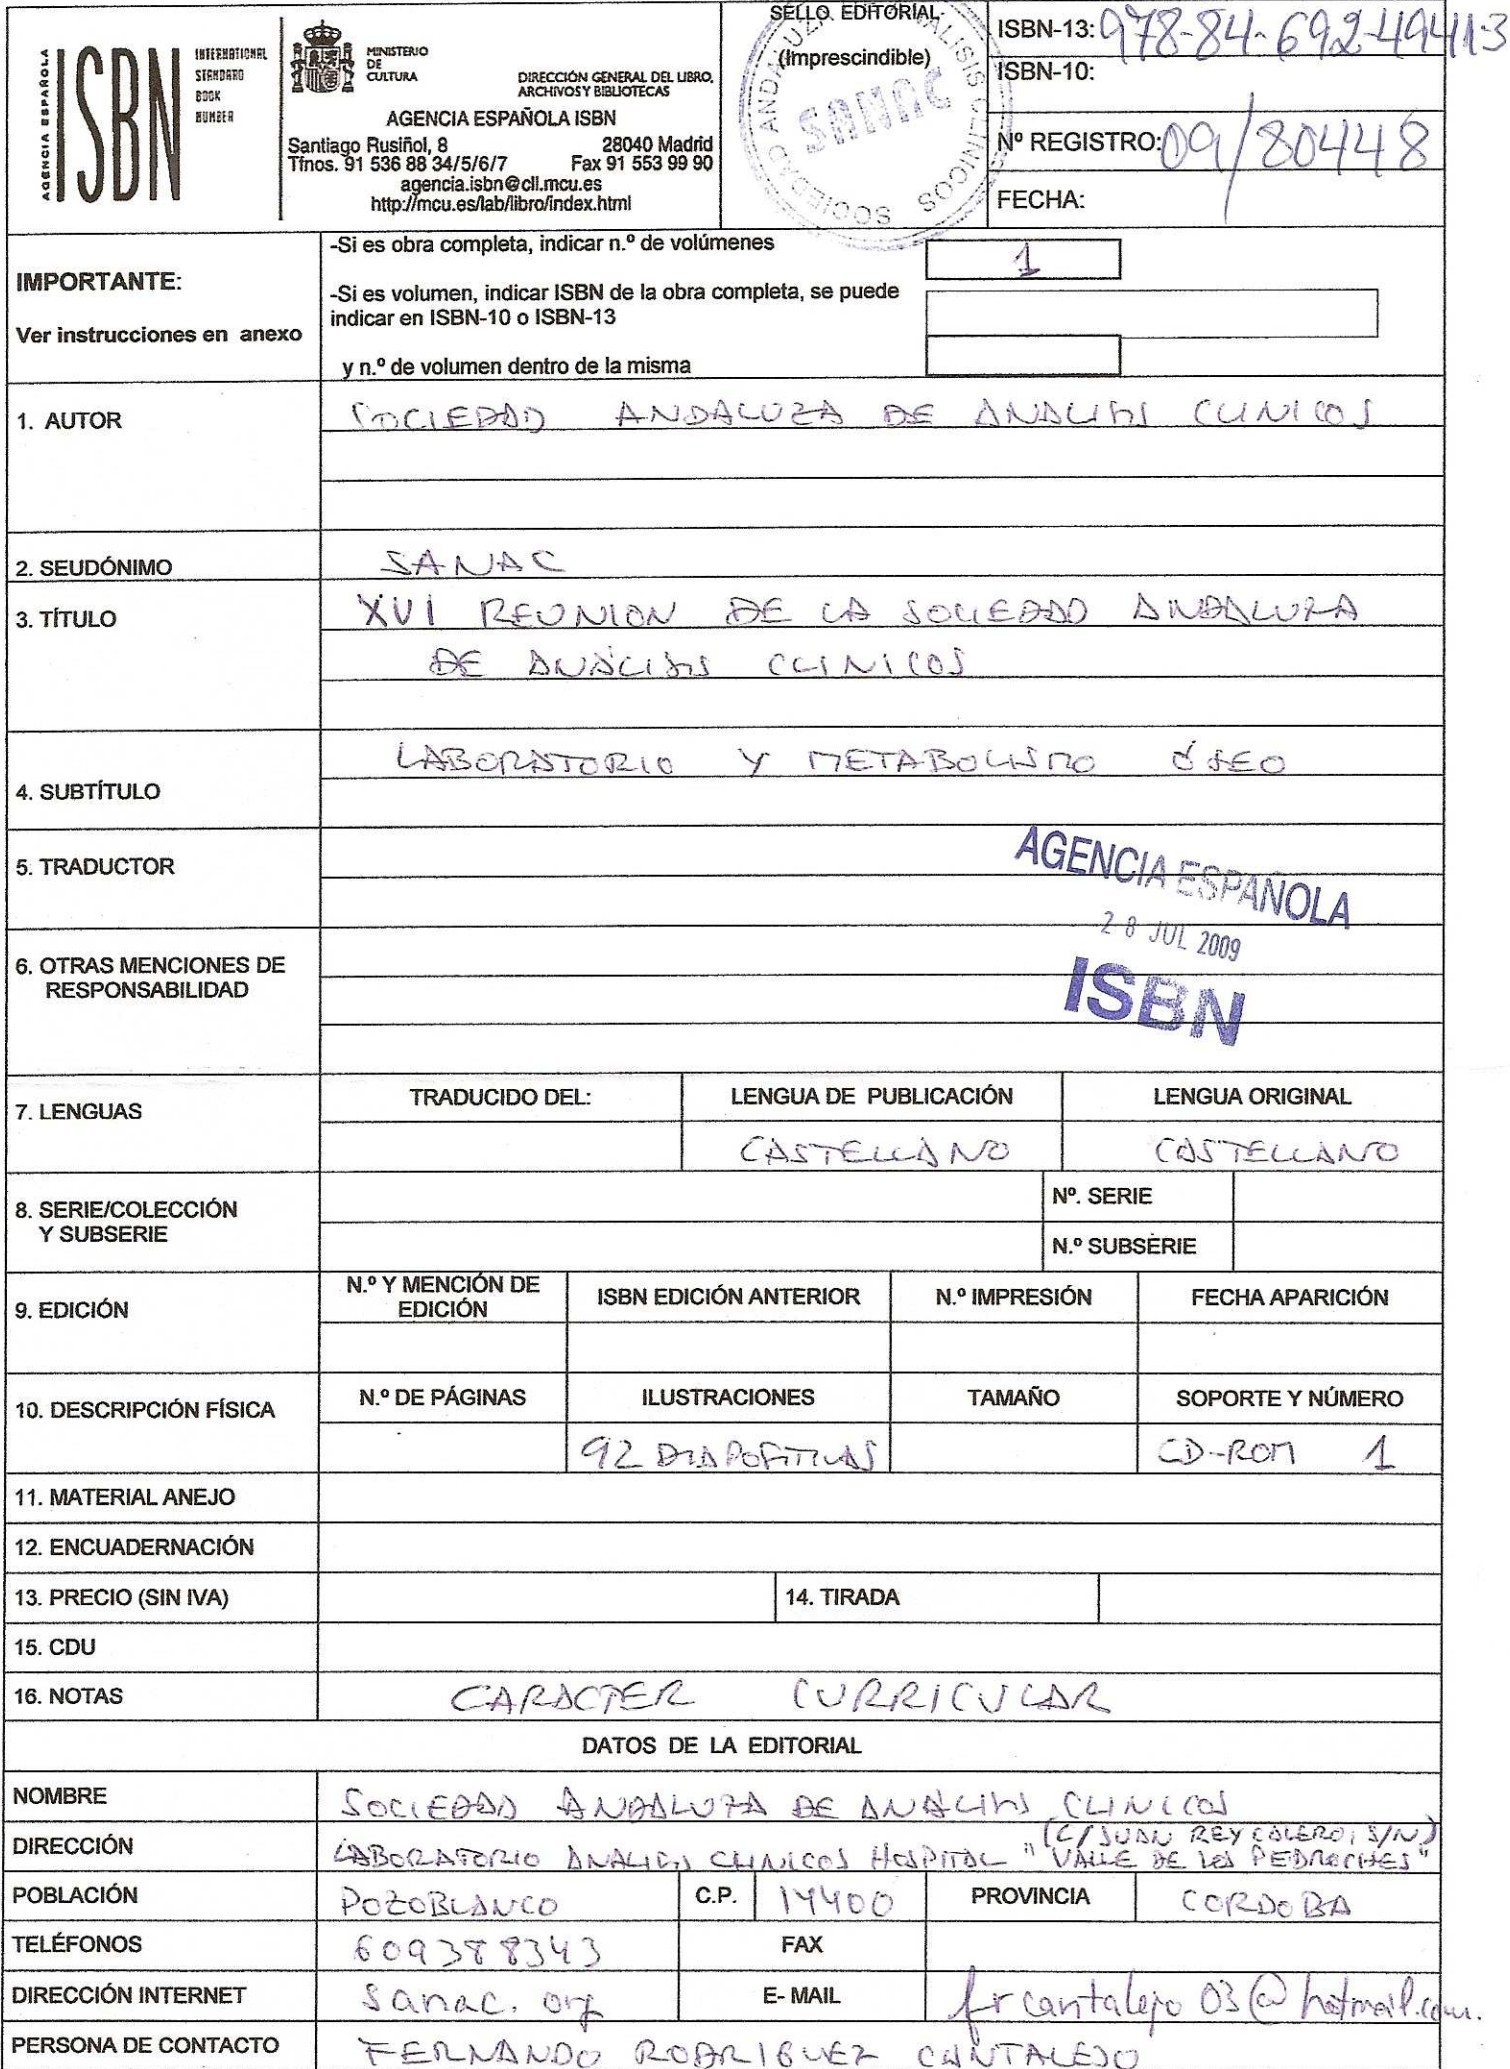 AGENCIA ESPAÑOLA
ISBN
INTERNATIONAL
STANDARD
BOOK
NUMBER
MINISTERIO
DE
CULTURA
DIRECCIÓN GENERAL DEL LIBRO,
ARCHIVOS Y BIBLIOTECAS
AGENCIA ESPAÑOLA ISBN
Santiago Rusiñol, 8 28040 Madrid
Tfnos. 91 536 88 34/5/6/7 Fax 91 553 99 90
agencia.isbn@cll.mcu.es
http://mcu.es/lab/libro/index.html
SELLO EDITORIAL
(Imprescindible)
SOCIEDAD ANDALUZA ANALISIS CLINICOS
SANAC
ISBN-13: 978-84-692-4941-3
ISBN-10:
Nº REGISTRO: 09/80448
FECHA:
IMPORTANTE:
Ver instrucciones en anexo
-Si es obra completa, indicar n.º de volúmenes 1
-Si es volumen, indicar ISBN de la obra completa, se puede
indicar en ISBN-10 o ISBN-13
y n.º de volumen dentro de la misma
1. AUTOR SOCIEDAD ANDALUZA DE ANALISIS CLINICOS
2. SEUDÓNIMO SANAC
3. TÍTULO XVI REUNION DE LA SOCIEDAD ANDALUZA
DE ANÁLISIS CLINICOS
LABORATORIO Y METABOLISMO ÓSEO
4. SUBTÍTULO
5. TRADUCTOR
AGENCIA ESPAÑOLA
28 JUL 2009
ISBN
6. OTRAS MENCIONES DE
RESPONSABILIDAD
7. LENGUAS
TRADUCIDO DEL: LENGUA DE PUBLICACIÓN LENGUA ORIGINAL
CASTELLANO CASTELLANO
8. SERIE/COLECCIÓN
Y SUBSERIE
Nº. SERIE
N.º SUBSERIE
9. EDICIÓN
N.º Y MENCIÓN DE
EDICIÓN
ISBN EDICIÓN ANTERIOR N.º IMPRESIÓN FECHA APARICIÓN
10. DESCRIPCIÓN FÍSICA
N.º DE PÁGINAS ILUSTRACIONES TAMAÑO SOPORTE Y NÚMERO
92 DIAPOSITIVAS CD-ROM 1
11. MATERIAL ANEJO
12. ENCUADERNACIÓN
13. PRECIO (SIN IVA) 14. TIRADA
15. CDU
16. NOTAS CARACTER CURRICULAR
DATOS DE LA EDITORIAL
NOMBRE SOCIEDAD ANDALUZA DE ANALISIS CLINICOS
(C/ JUAN REY CALERO, S/N)
DIRECCIÓN LABORATORIO ANALISIS CLINICOS HOSPITAL "VALLE DE LOS PEDROCHES"
POBLACIÓN POZOBLANCO C.P. 14400 PROVINCIA CORDOBA
TELÉFONOS 609388343 FAX
DIRECCIÓN INTERNET sanac.org E- MAIL frcantalejo03@hotmail.com.
PERSONA DE CONTACTO FERNANDO RODRIGUEZ CANTALEJO